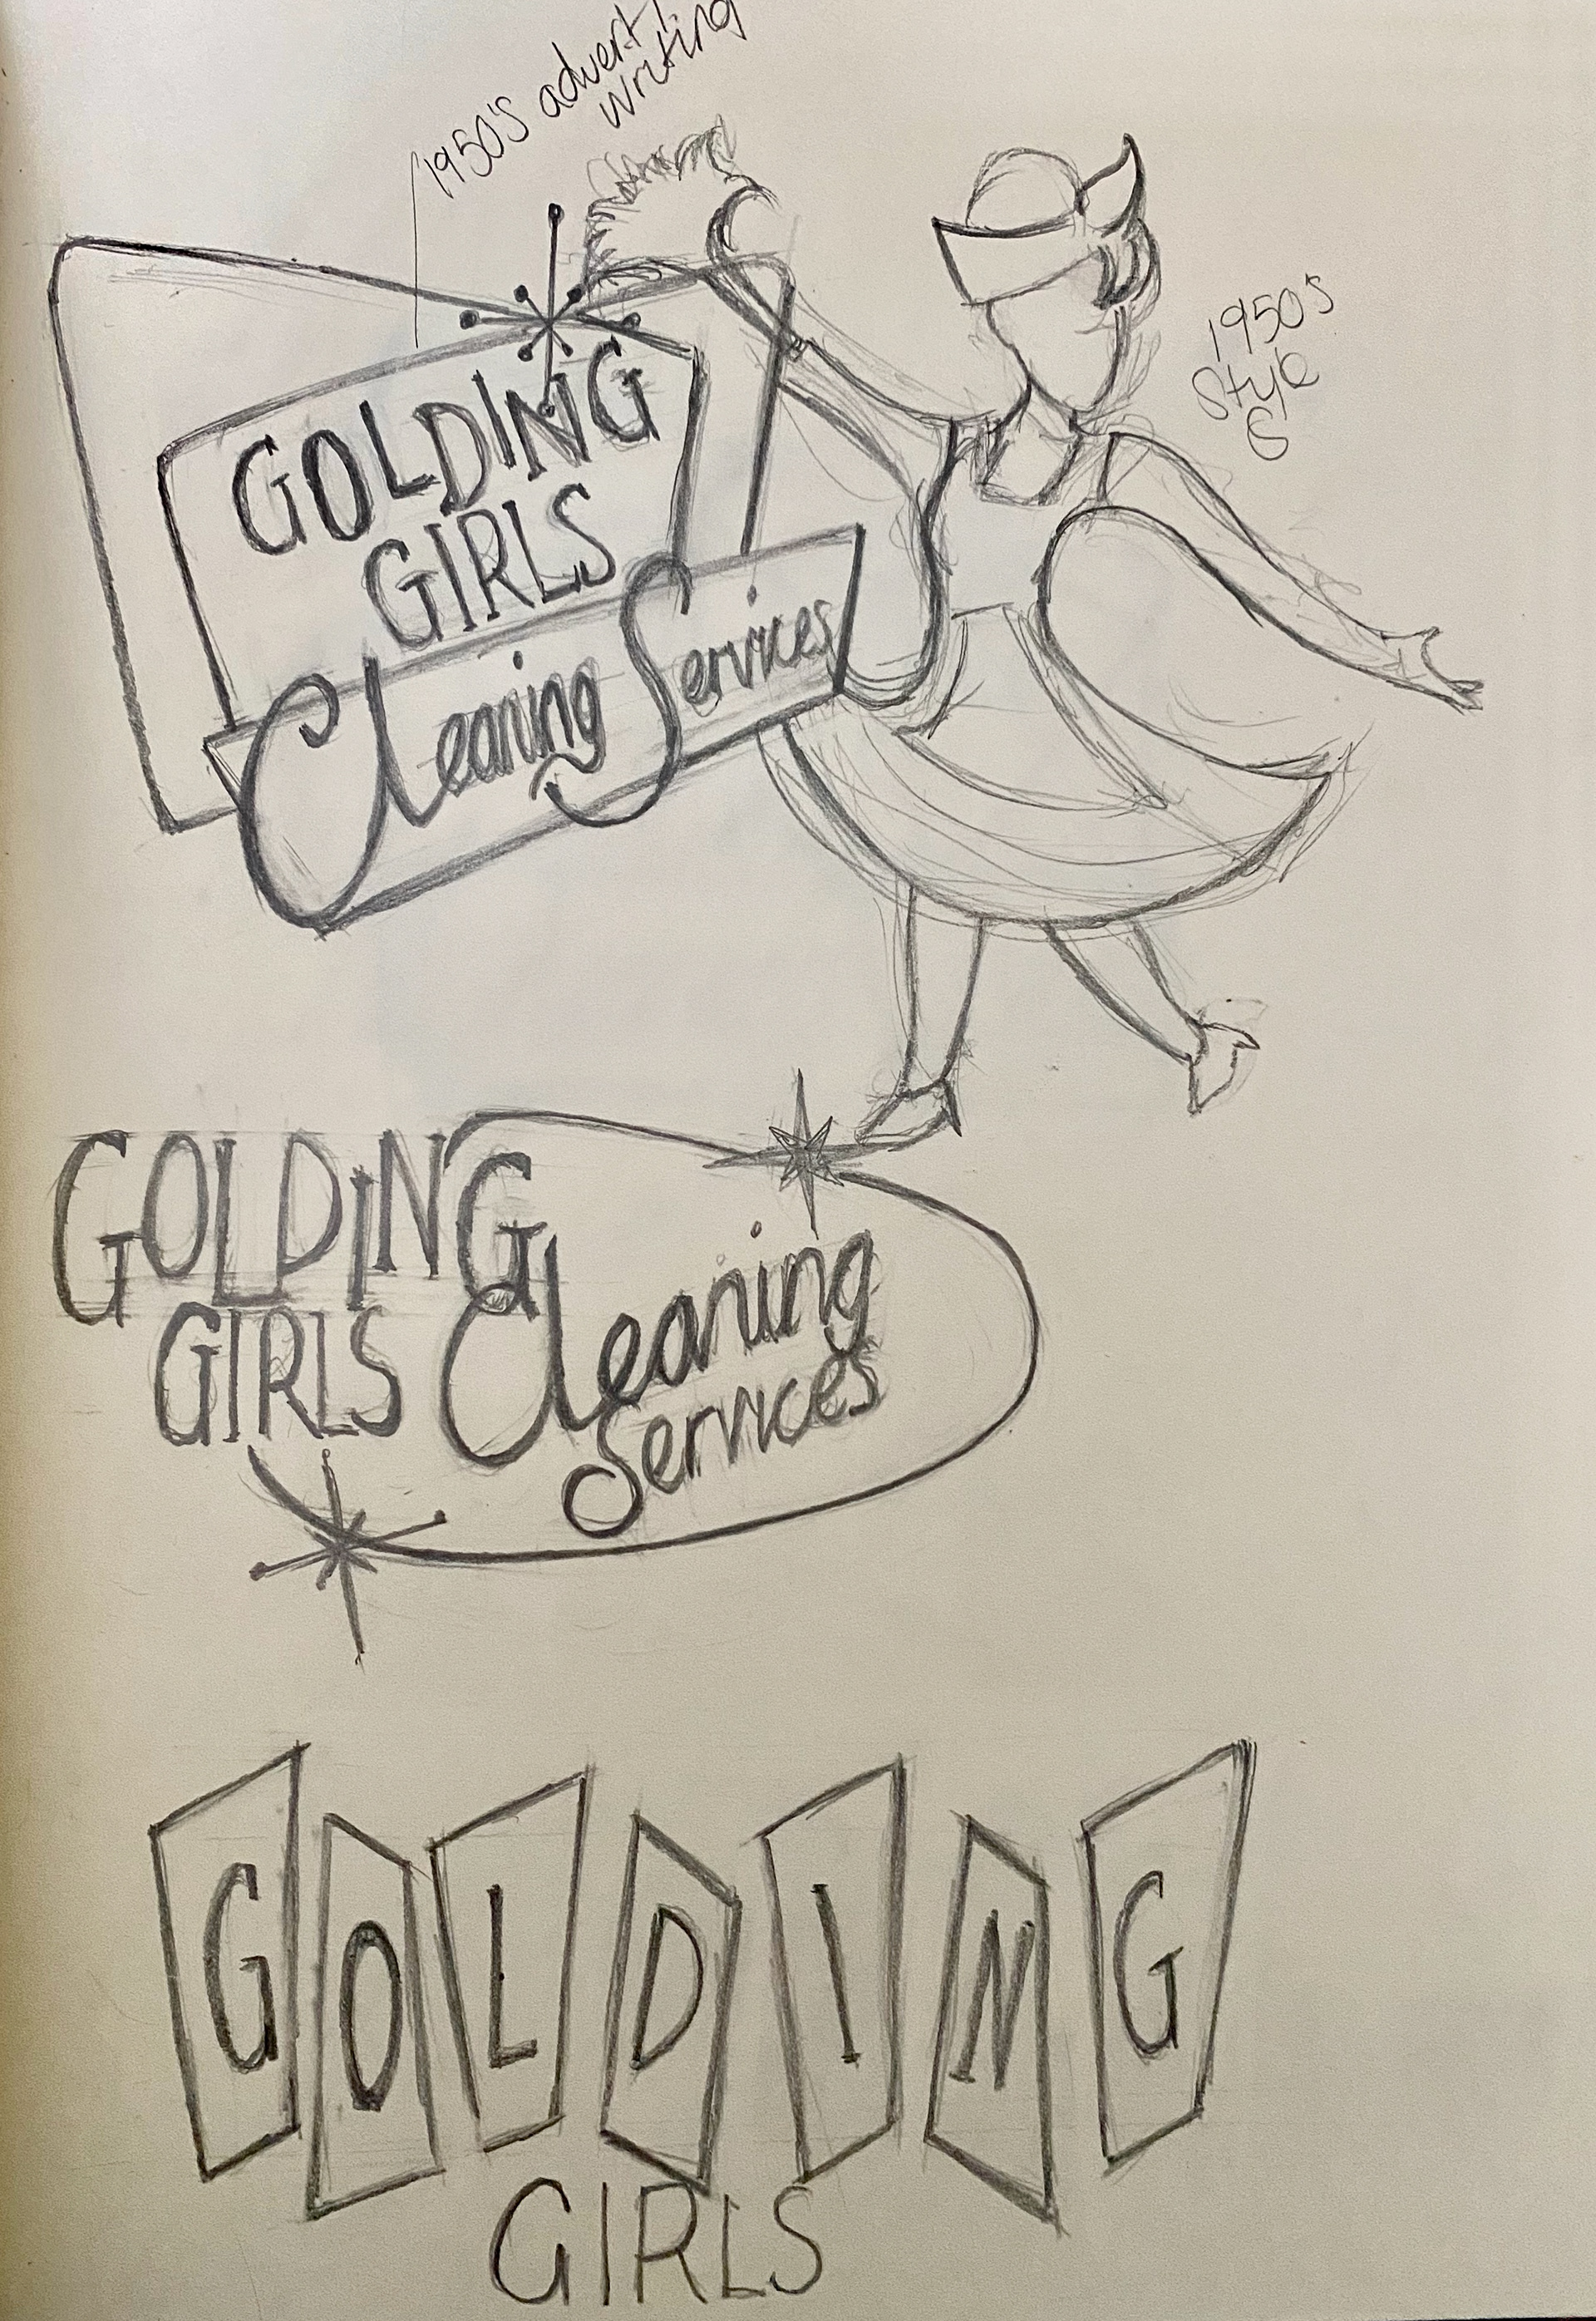 1950's advert
writing
GOLDING
GIRLS
Cleaning Services
1950's
Style
GOLDING
GIRLS
Cleaning
Services
GOLDING
GIRLS